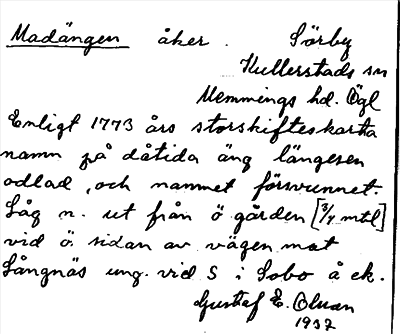 Madängen åker. Sörby
Kullerstads sn
Memmings hd. Ögl
Enligt 1773 års storskifteskarta
namn på dåtida äng längesen
odlad, och namnet försvunnet.
Låg n. ut från ö gården [3/4 mtl]
vid ö. sidan av vägen mot
Långnäs ung. vid S i Sobo å ek.
Gustaf E. Olsson
1937